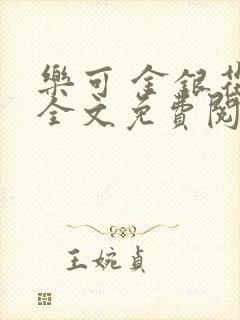 樂可 金銀花
全文免費閱
王婉貞